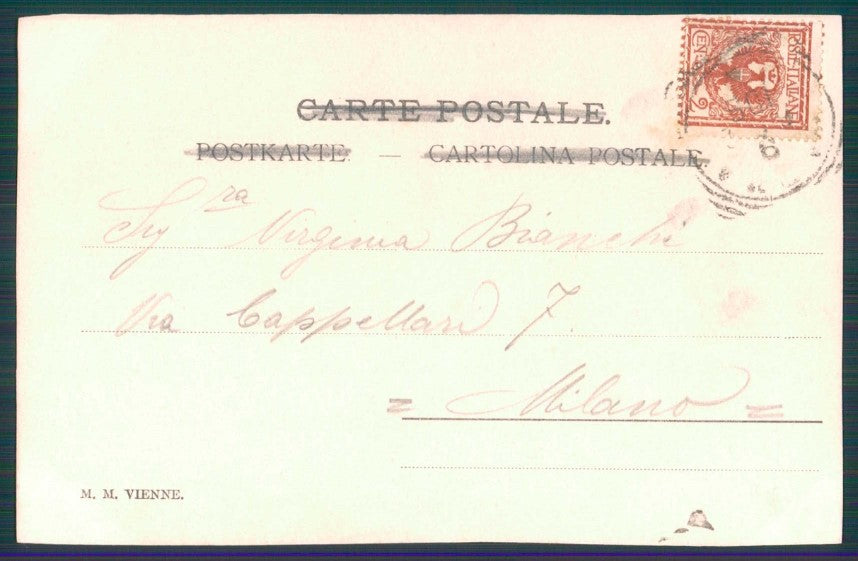 CARTE POSTALE.
POSTKARTE. — CARTOLINA POSTALE.
POSTE ITALIANE
CENT. 2
Sigra Virginia Bianchi
Via Cappellari 7.
= Milano =
M. M. VIENNE.